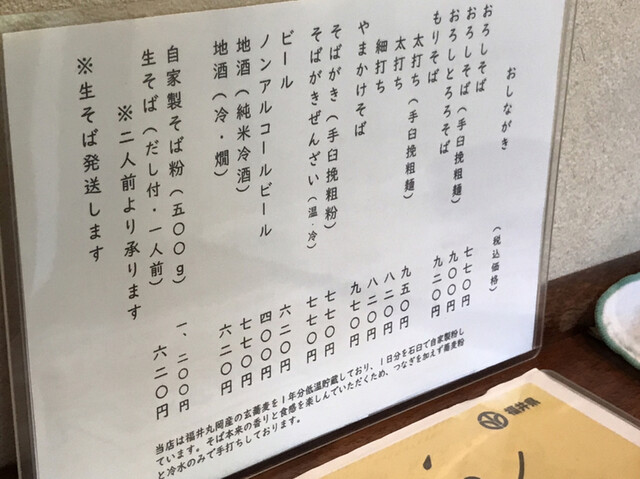 おしながき (税込価格)
おろしそば 七七〇円
おろしそば(手臼挽粗麺) 九〇〇円
おろしとろろそば 九二〇円
もりそば
太打ち(手臼挽粗麺) 九五〇円
太打ち 八二〇円
細打ち 八二〇円
やまかけそば 九七〇円
そばがき(手臼挽粗粉) 七七〇円
そばがきぜんざい(温・冷) 七七〇円
ビール 六二〇円
ノンアルコールビール 四〇〇円
地酒(純米冷酒) 七七〇円
地酒(冷・燗) 六二〇円
自家製そば粉(五〇〇g) 一、二〇〇円
生そば(だし付・一人前) 六二〇円
※二人前より承ります
※生そば発送します
当店は福井丸岡産の玄蕎麦を1年分低温貯蔵しており、1日分を石臼で自家製粉し
ています。そば本来の香りと食感を楽しんでいただくため、つなぎを加えず蕎麦粉
と冷水のみで手打ちしております。
福井県